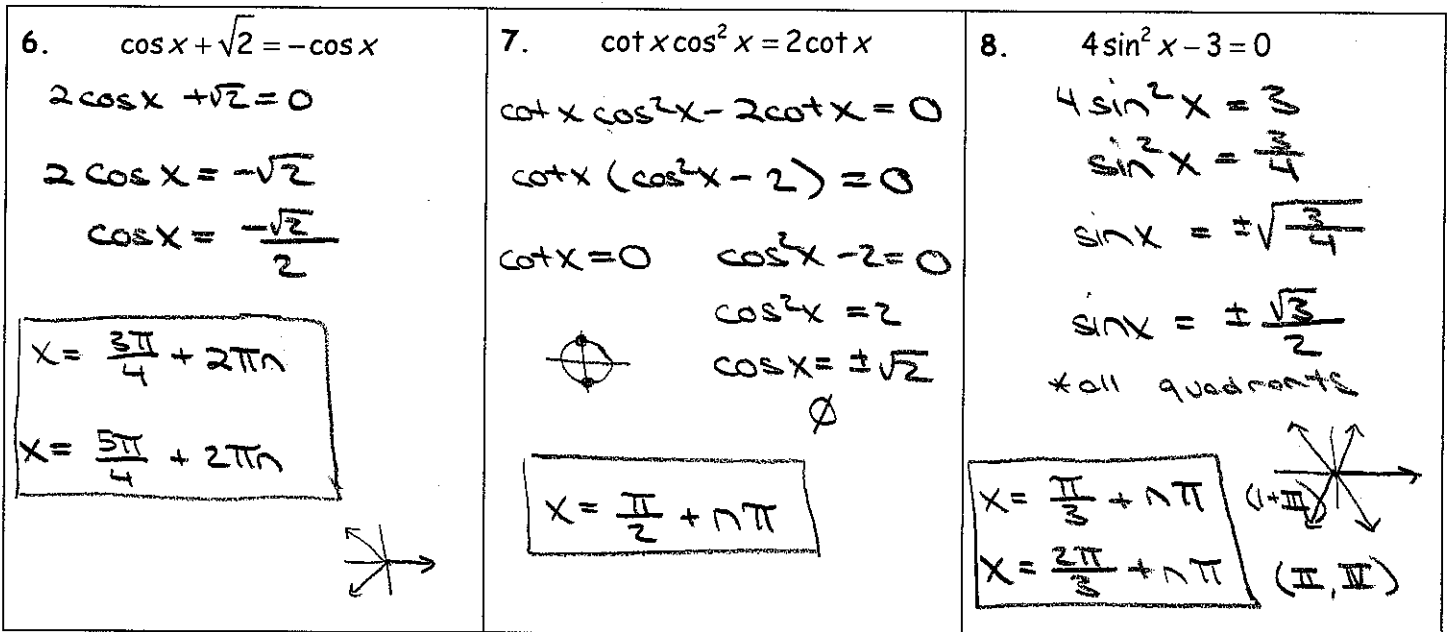 6. cos x + √2 = -cos x
2 cos x + √2 = 0
2 cos x = -√2
cos x = -√2/2
x = 3π/4 + 2πn
x = 5π/4 + 2πn
7. cot x cos² x = 2 cot x
cot x cos² x - 2 cot x = 0
cot x (cos² x - 2) = 0
cot x = 0 cos² x - 2 = 0
cos² x = 2
cos x = ±√2
∅
x = π/2 + nπ
8. 4 sin² x - 3 = 0
4 sin² x = 3
sin² x = 3/4
sin x = ±√(3/4)
sin x = ±√3/2
*all quadrants
x = π/3 + nπ (I + III)
x = 2π/3 + nπ (II, IV)